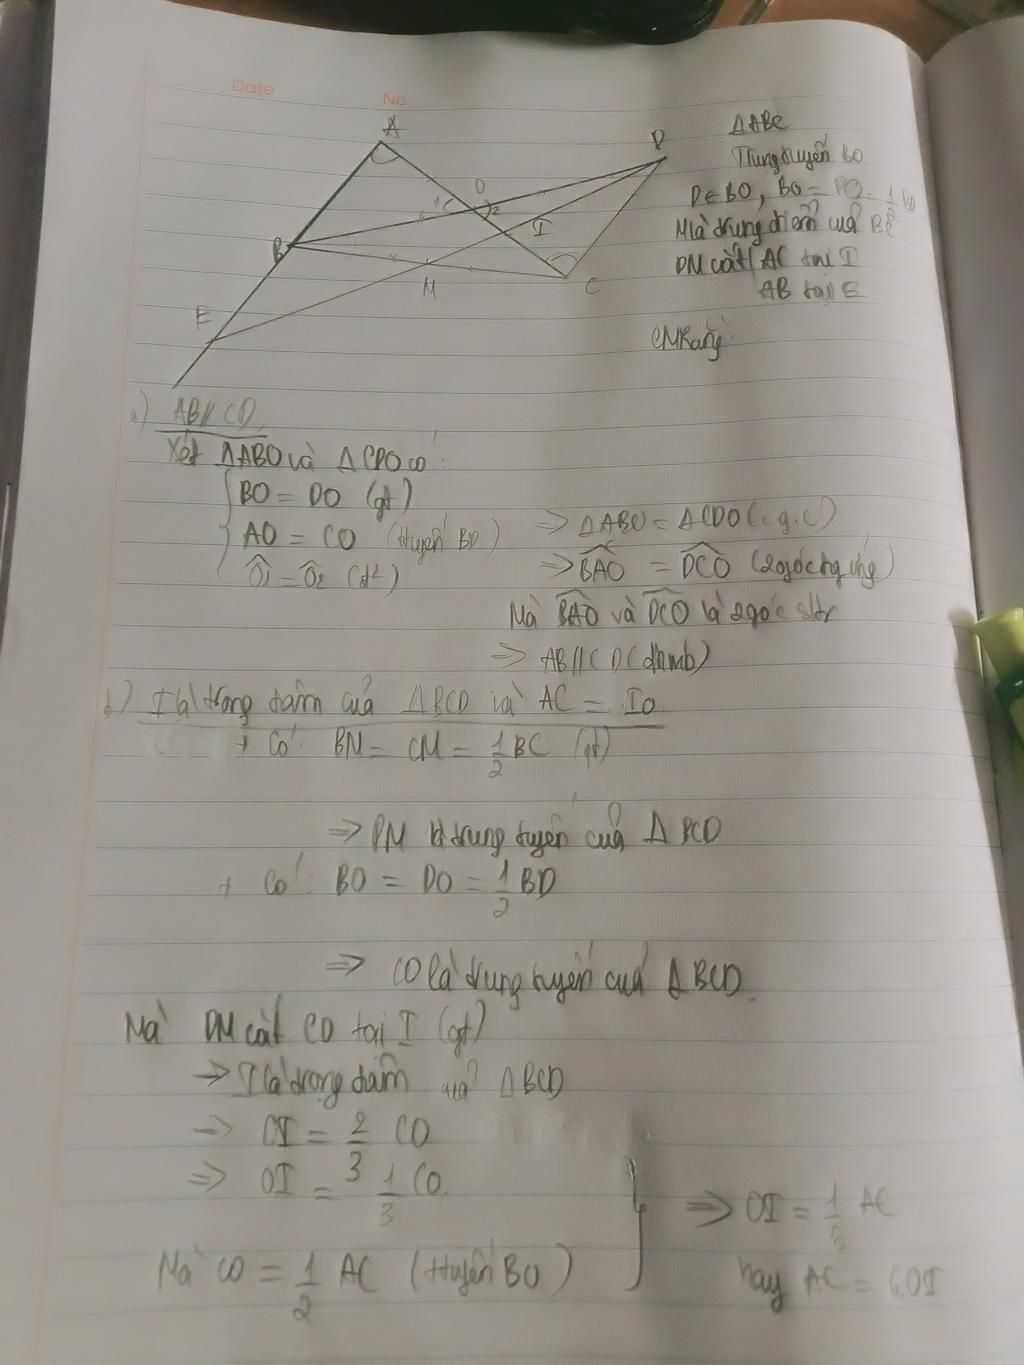 Date
No
A
D
O
1
2
I
B
M
C
E
ΔABC
Trung tuyến BO
D∈BO, BO = DO = 1/2 BD
M là trung điểm của BC
DM cắt AC tại I
AB tại E
CMRằng:
a) AB // CD
Xét ΔABO và ΔCDO có:
BO = DO (gt)
AO = CO (ttuyến BD)
Ô1 = Ô2 (đ²)
=> ΔABO = ΔCDO (c.g.c)
=> BAO = DCO (2 góc tg ứng)
Mà BAO và DCO là 2 góc sltr
=> AB // CD (đhmb)
b) I là trọng tâm của ΔBCD và AC = IO
+ Có: BM = CM = 1/2 BC (gt)
=> DM là trung tuyến của ΔBCD
+ Có: BO = DO = 1/2 BD
=> CO là trung tuyến của ΔBCD.
Mà DM cắt CO tại I (gt)
=> I là trọng tâm của ΔBCD
=> CI = 2/3 CO
=> OI = 1/3 CO
Mà CO = 1/2 AC (ttuyến BO)
=> OI = 1/6 AC
hay AC = 6.OI